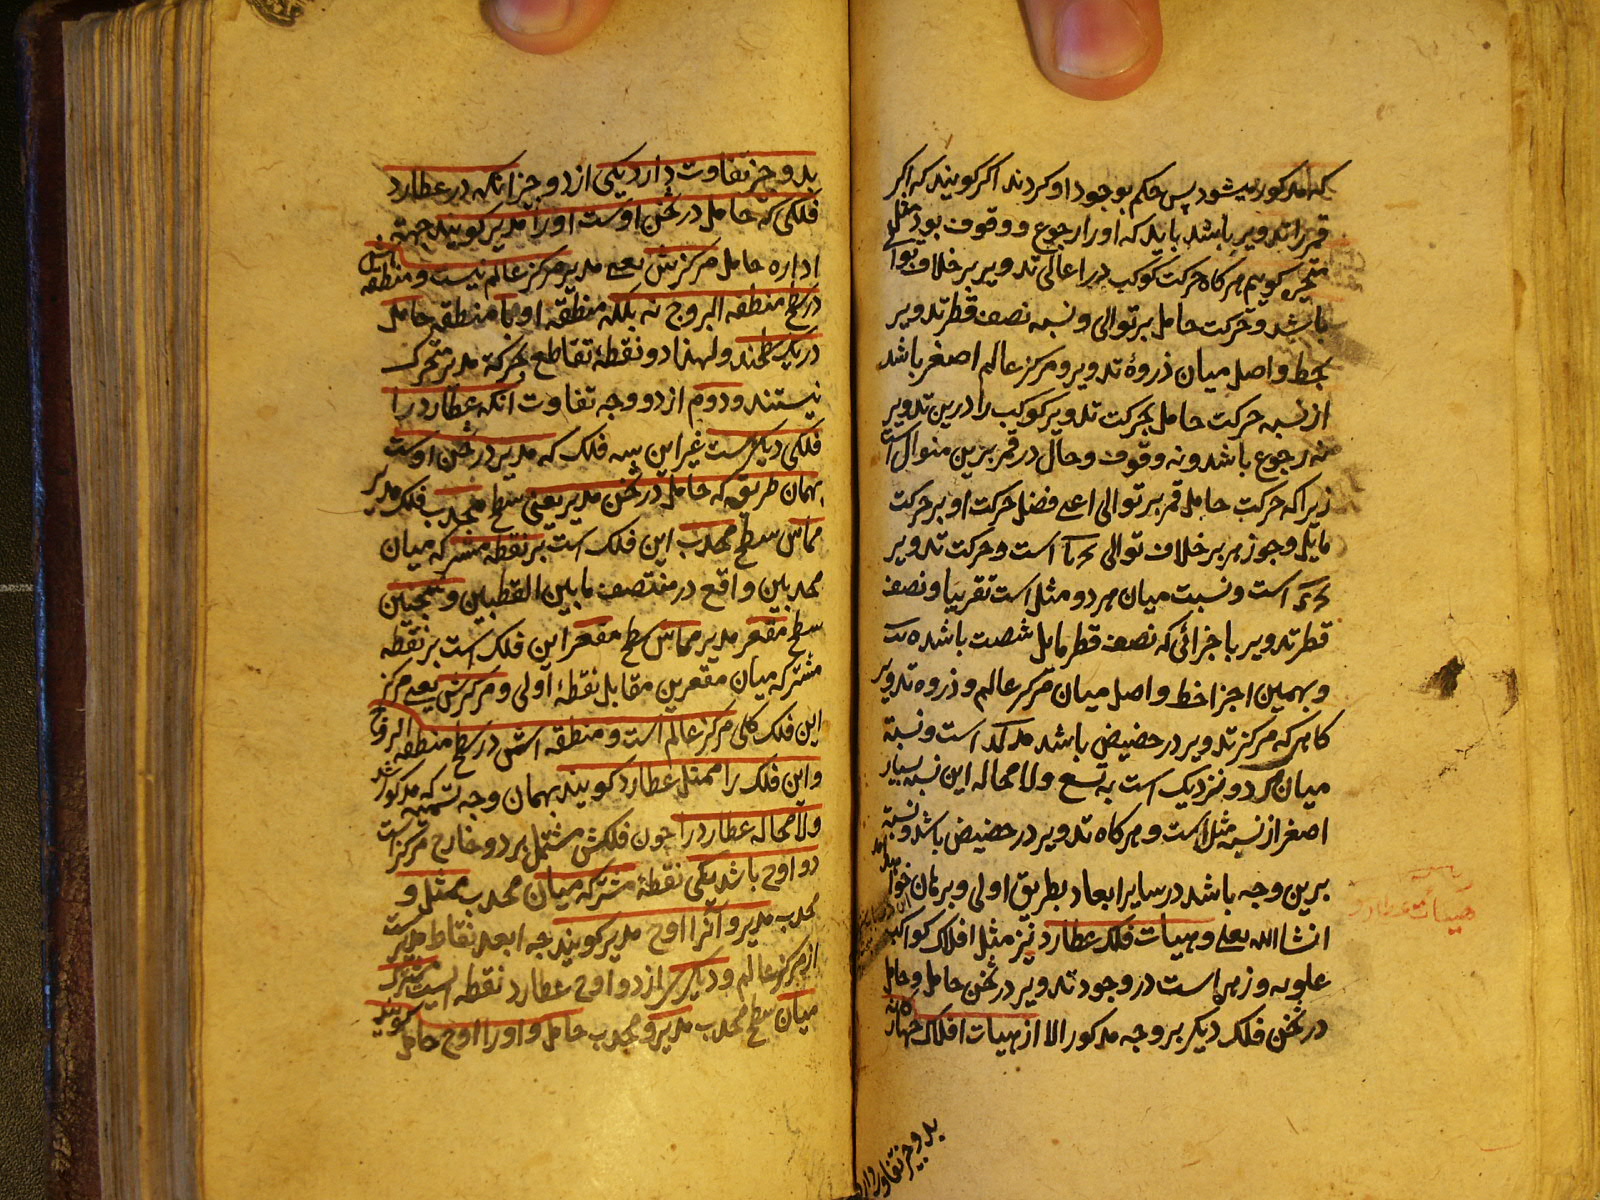 که مذکور میشود پس حکم بوجود او کردند اگر گویند که اگر
قمر را تدویر باشد باید که او را رجوع و وقوف بود مثل
متحیره گویم هرگاه حرکت کوکب در اعالی تدویر بر خلاف توالی
باشد و حرکت حامل بر توالی و نسبه نصف قطر تدویر
بخط واصل میان ذروهٔ تدویر و مرکز عالم اصغر باشد
از نسبه حرکت حامل بحرکت تدویر کوکب را درین تدویر
نه رجوع باشد و نه وقوف و حال در قمر برین منوال است
زیرا که حرکت حامل قمر بر توالی اعنی فضل حرکت او بر حرکت
مایل و جوزهر بر خلاف توالی است و حرکت تدویر
است و نسبت میان هر دو مثل است تقریبا و نصف
قطر تدویر باجزائی که نصف قطر مایل شصت باشد
و بهمین اجزا خط واصل میان مرکز عالم و ذروه تدویر
کاهی که مرکز تدویر در حضیض باشد است و نسبة
میان هر دو نزدیک است به تسع و لا محاله این نسبه بسیار
اصغر از نسبه مثل است و هرکاه تدویر در حضیض باشد و نسبة
برین وجه باشد در سایر ابعاد بطریق اولی و برهان خواهد
انشا الله تعالی و هیات فلک عطارد نیز مثل افلاک کواکب
علویه و زهره است در وجود تدویر در ثخن حامل و حامل
در ثخن فلک دیگر بر وجه مذکور الا از هیات افلاک چهارگانه
هیات عطارد
بدو چیز تفاوت دارد
بدو چیز تفاوت دارد یکی از دو چیز انکه در عطارد
فلکی که حامل در ثخن اوست او را مدیر گویند جهة
اداره حامل مرکزش یعنی مدیر مرکز عالم نیست و منطقه اش
در سطح منطقه البروج نه بلکه منطقه او با منطقه حامل
در یک سطحند و لهذا دو نقطهٔ تقاطع بحرکة مدیر متحرک
نیستند و دوم از دو وجه تفاوت آنکه عطارد را
فلکی دیگرست غیر این سه فلک که مدیر در ثخن اوست
بهمان طریق که حامل در ثخن مدیر یعنی سطح محدب فلک مدیر
مماس سطح محدب این فلک است بر نقطه مشترکه میان
محدبین واقع در منتصف مابین القطبین و همچنین
سطح مقعر مدیر مماس سطح مقعر این فلک است بر نقطه
مشترکه میان مقعرین مقابل نقطهٔ اولی و مرکزش یعنی مرکز
این فلک کلی مرکز عالم است و منطقه اش در سطح منطقه البروج
و این فلک را ممثل عطارد گویند بهمان وجه تسمیه که مذکور شد
و لا محاله عطارد را چون فلکش مشتمل بر دو خارج مرکز است
دو اوج باشد یکی نقطهٔ مشترکه میان محدب ممثل و
محدب مدیر و آنرا اوج مدیر گویند چه ابعد نقاط مدیر است
از مرکز عالم و دیگری از دو اوج عطارد نقطه ایست مشترک
میان سطح محدب مدیر و محدب حامل و او را اوج حامل گویند